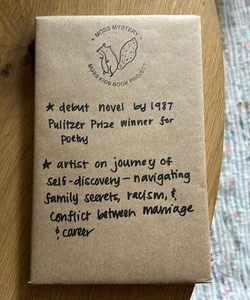 MOSS MYSTERY
MOSS KIDS BOOK PROJECT
★ debut novel by 1987
Pulitzer Prize winner for
poetry
★ artist on journey of
self-discovery – navigating
family secrets, racism, &
conflict between marriage
& career